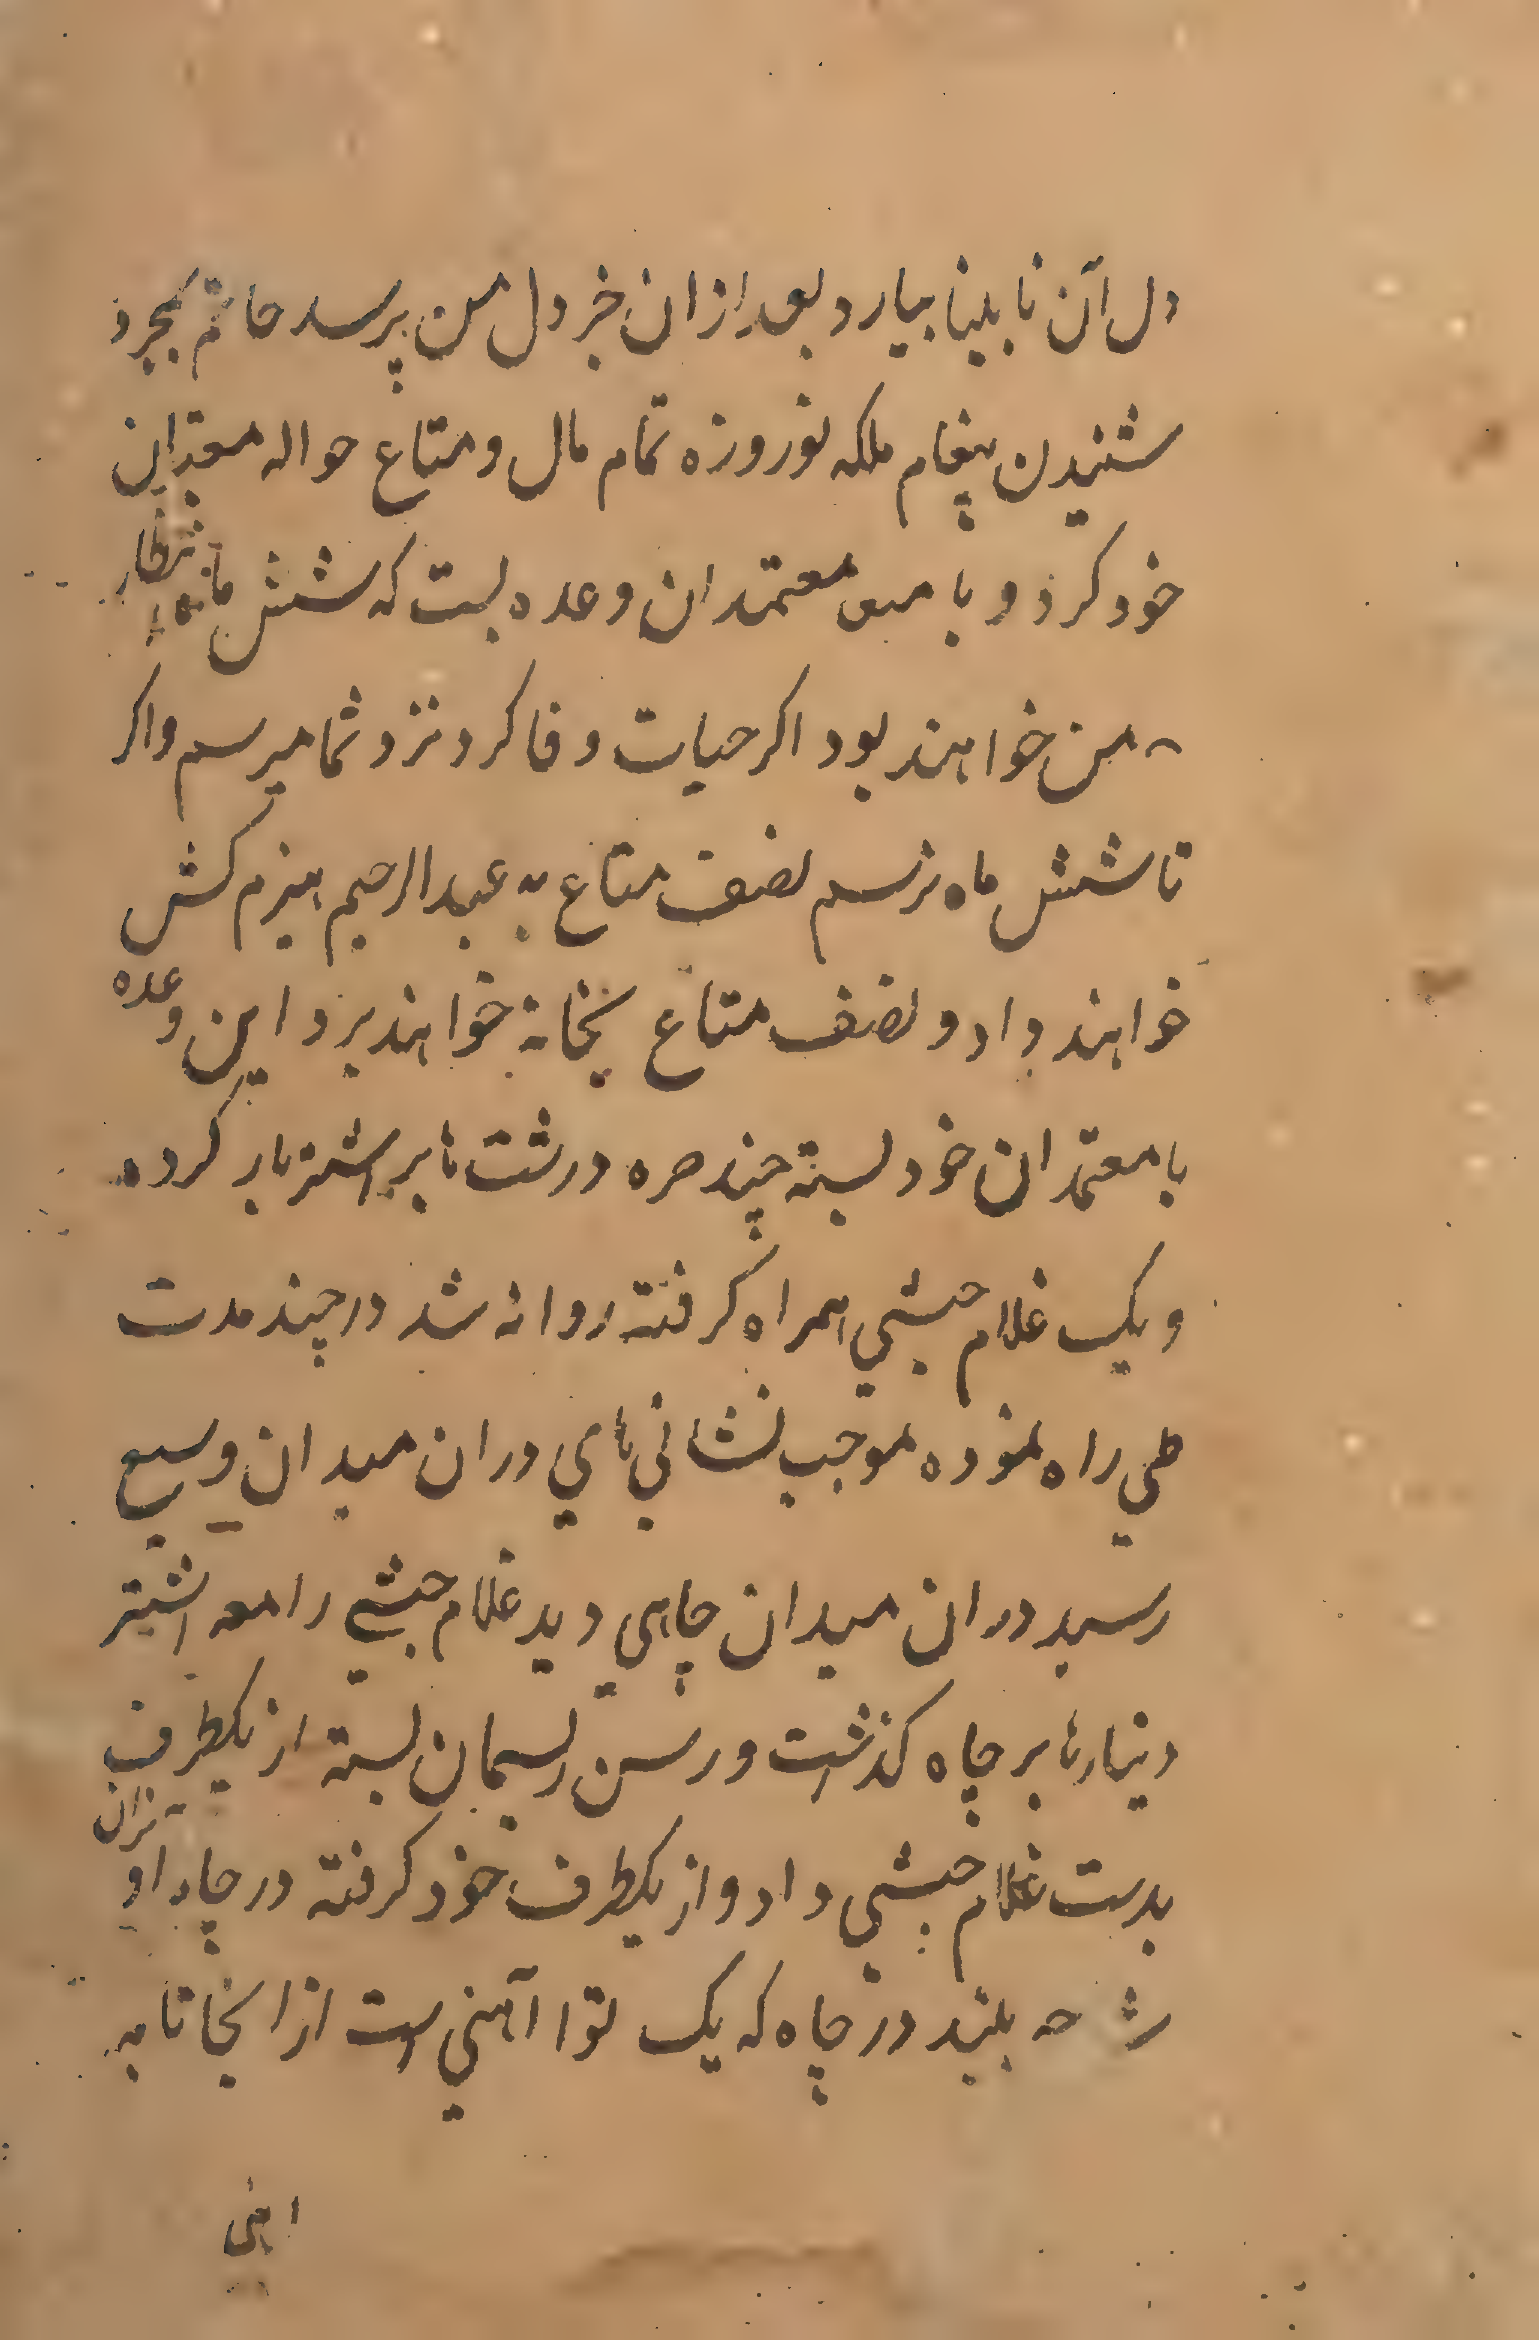 دل آن نابینا بیارد بعد ازان خبر دل من پرسد حاتم بمجرد
شنیدن پیغام ملکه نوروزه تمام مال و متاع حواله معتبران
خود کرد و با معتمدان وعده بست که شش ماه انتظار
من خواهند بود اکر حیات وفا کرد نزد شما میرسم واکر
تا شش ماه نرسم نصف متاع به عبدالرحیم هیزم کش
خواهند داد و نصف متاع بخانه خواهند برد این وعده
با معتمدان خود بسته چند صره در شت تا بر اشتر بار کرده
و یک غلام حبشي همراه کرفته روانه شد در چند مدت
طي راه نموده بموجب نشاني هاي دران میدان وسیع
رسید دران میدان چاهي دید غلام حبشي را معه اشتر
دینارها بر چاه کذاشت و رسن ریسمان بسته از یکطرف
بدست غلام حبشي داد و از یکطرف خود کرفته در چاه اویزان
شد چه بیند در چاه که یک توا آهني است از انجا تا به